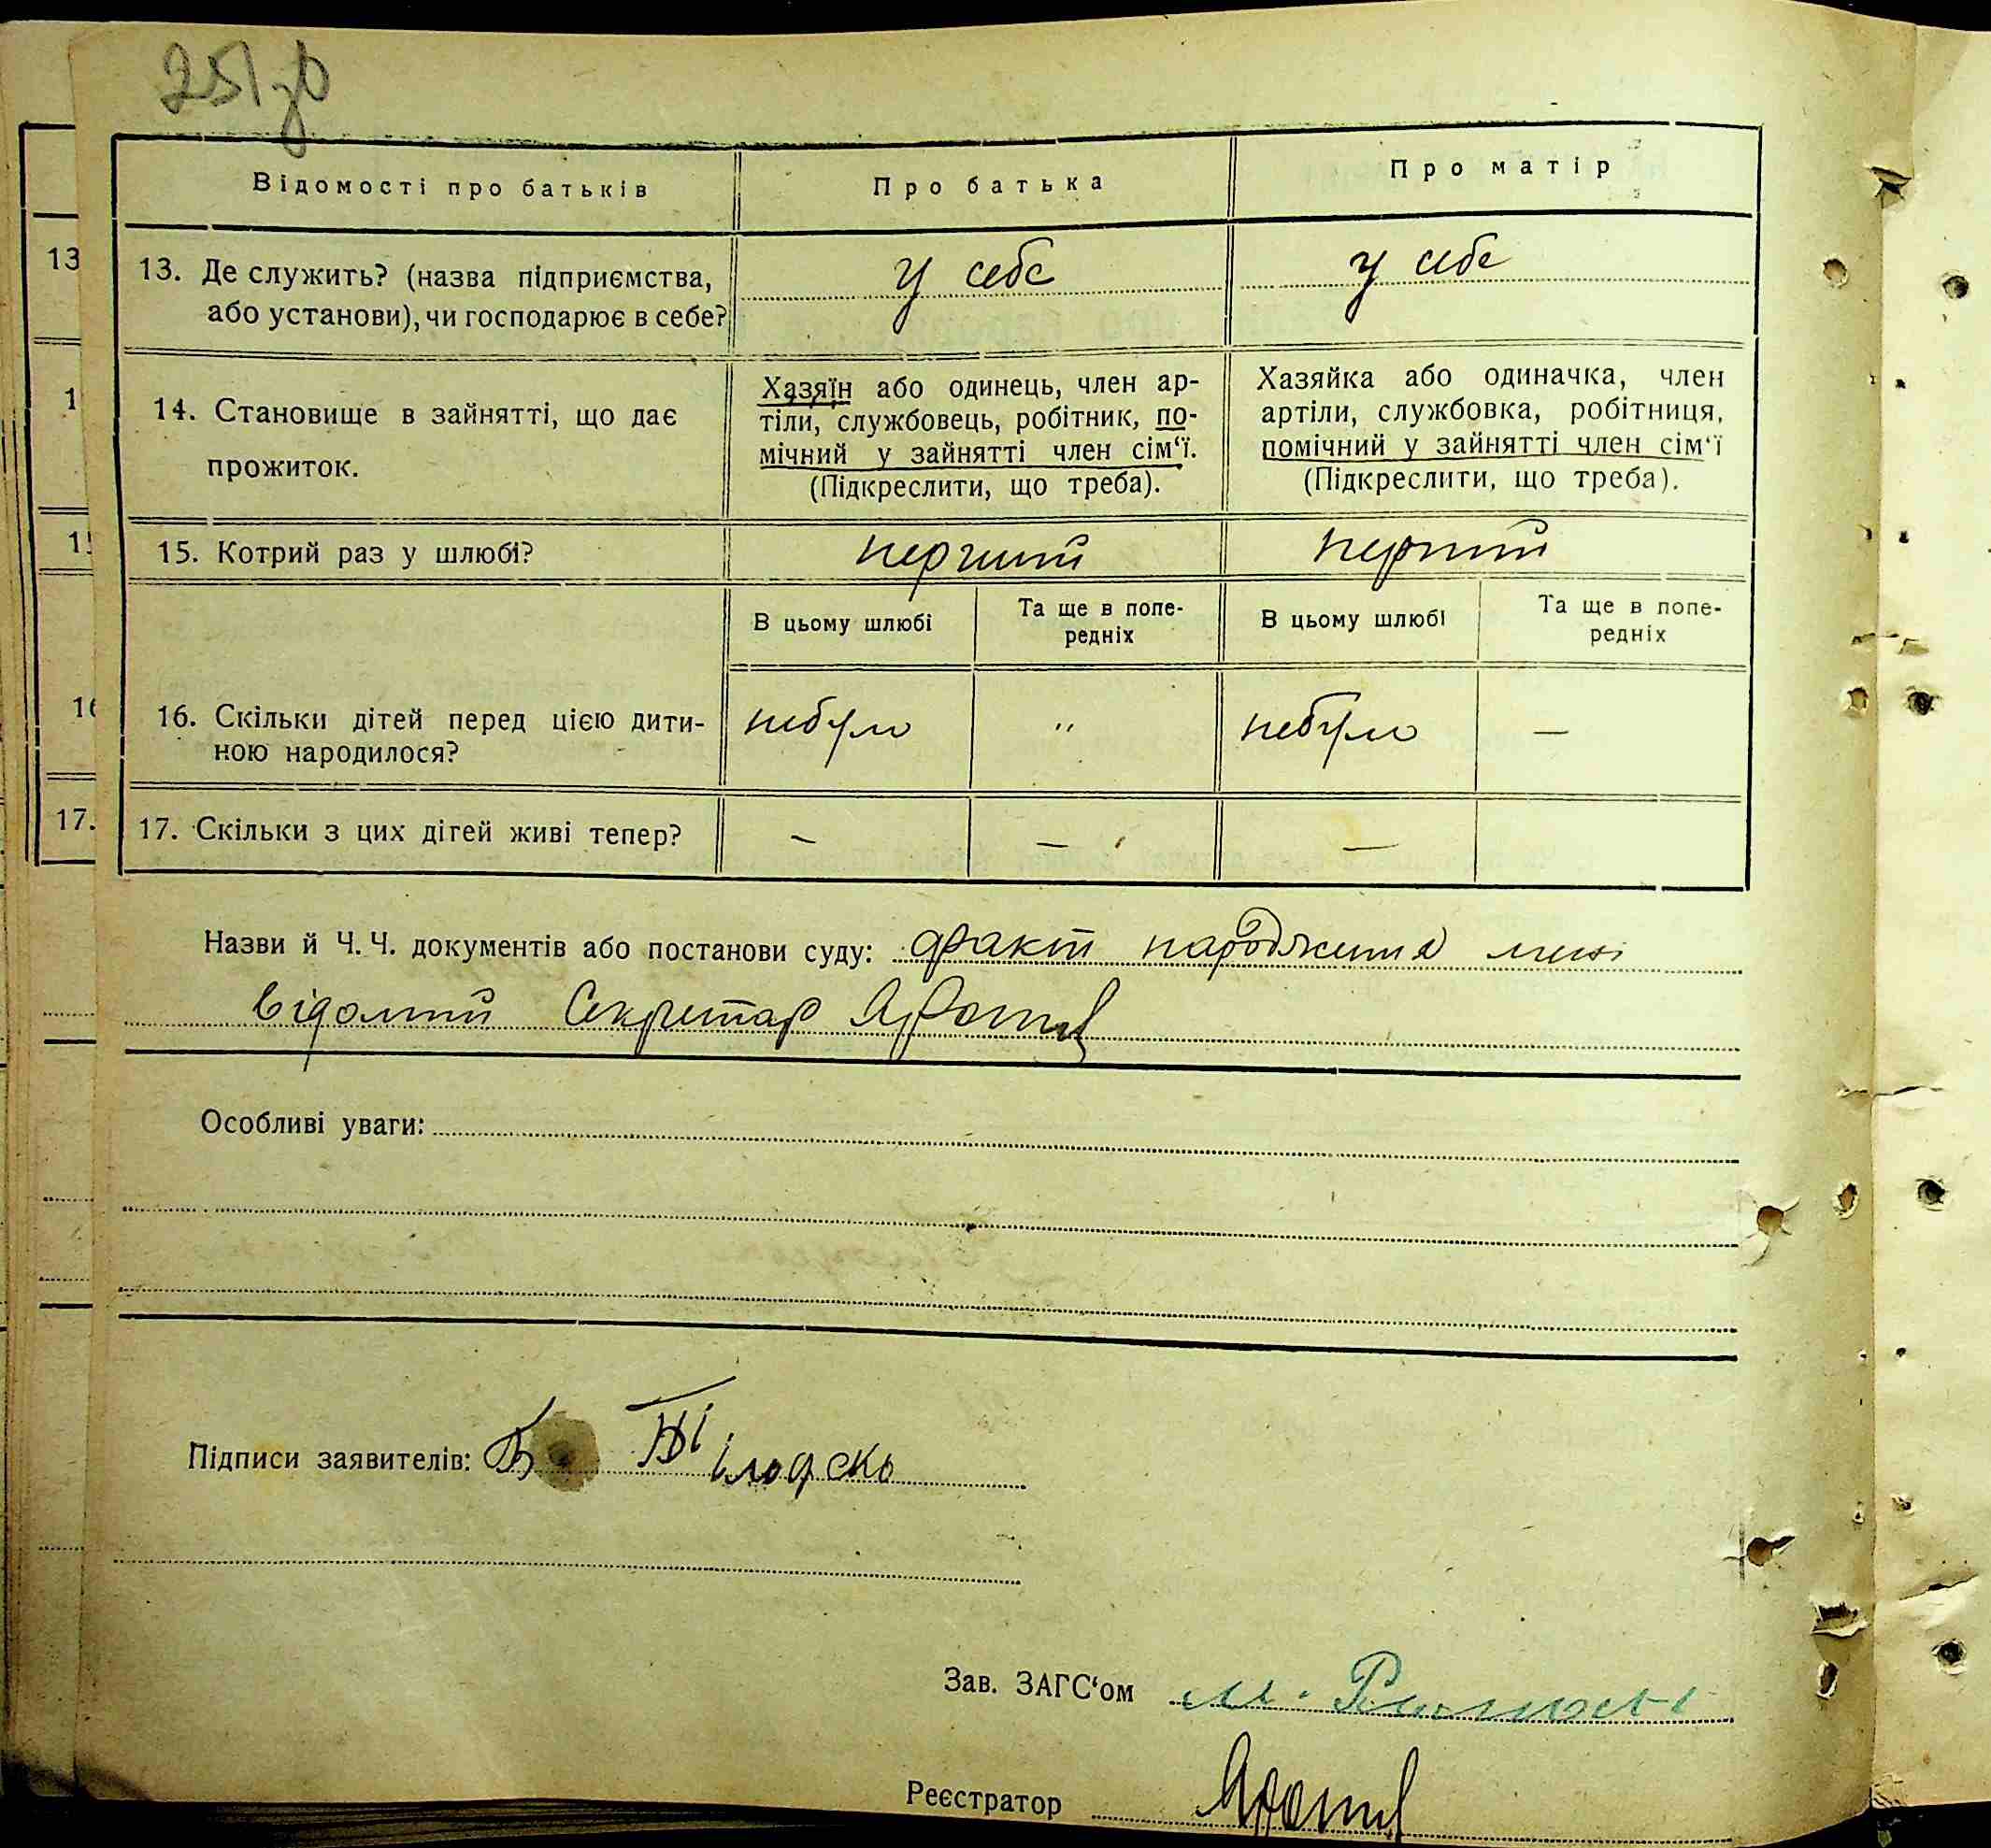 251зв
Відомості про батьків
Про батька
Про матір
13. Де служить? (назва підприємства,
або установи), чи господарює в себе?
у себе
у себе
14. Становище в зайнятті, що дає
прожиток.
Хазяїн або одинець, член ар-
тіли, службовець, робітник, по-
мічний у зайнятті член сім‘ї.
(Підкреслити, що треба).
Хазяйка або одиначка, член
артіли, службовка, робітниця,
помічний у зайнятті член сім‘ї
(Підкреслити, що треба).
15. Котрий раз у шлюбі?
перший
перший
В цьому шлюбі
Та ще в попе-
редніх
В цьому шлюбі
Та ще в попе-
редніх
16. Скільки дітей перед цією дити-
ною народилося?
небуло
"
небуло
—
17. Скільки з цих дітей живі тепер?
—
—
—
Назви й Ч. Ч. документів або постанови суду: факт народження мені
відомий Секретар
Особливі уваги:
Підписи заявителів:
Зав. ЗАГС‘ом
Реєстратор
13
1
15
16
17.